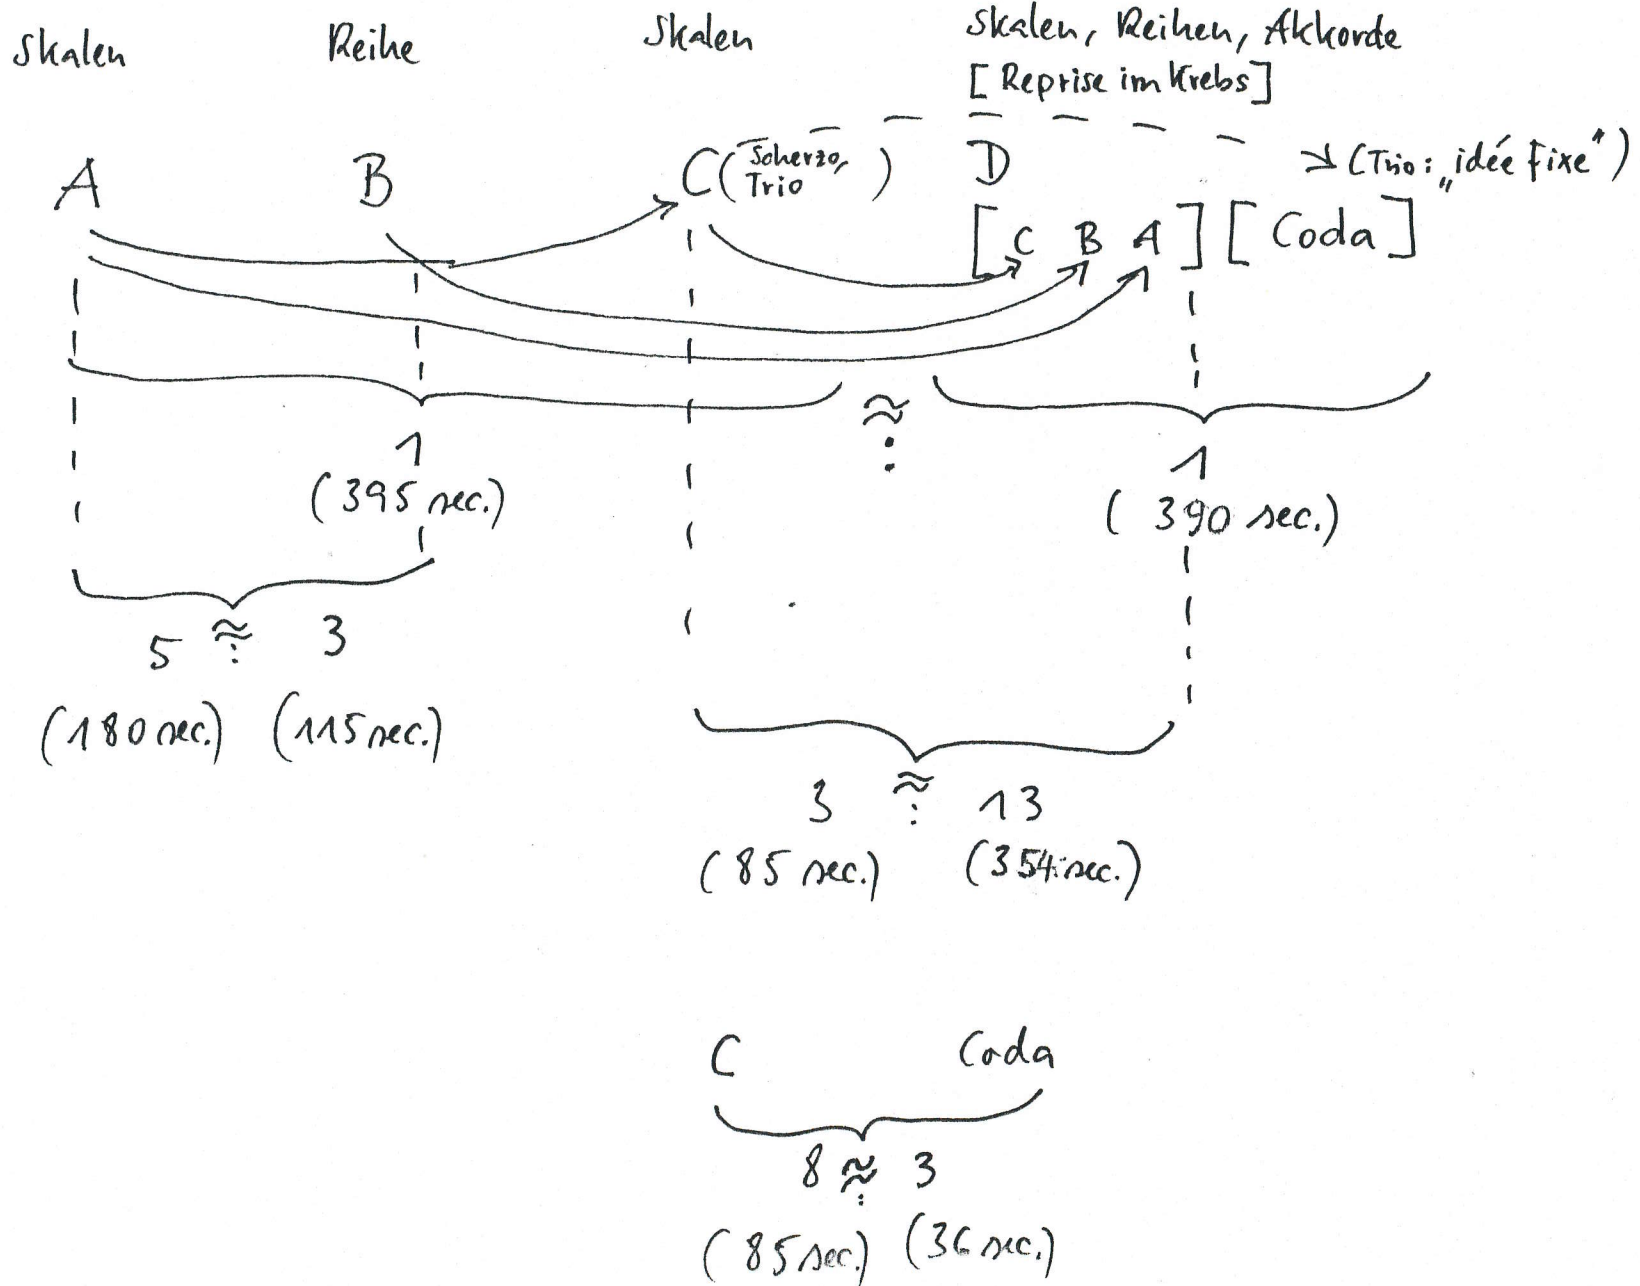 Skalen Reihe Skalen Skalen, Reihen, Akkorde
[Reprise im Krebs]
A B C (Scherzo, Trio) D (Trio: „idée fixe")
[C B A] [Coda]
1 ≈: 1
(395 sec.) (390 sec.)
5 ≈: 3
(180 sec.) (115 sec.)
3 ≈: 13
(85 sec.) (354 sec.)
C Coda
8 ≈: 3
(85 sec.) (36 sec.)